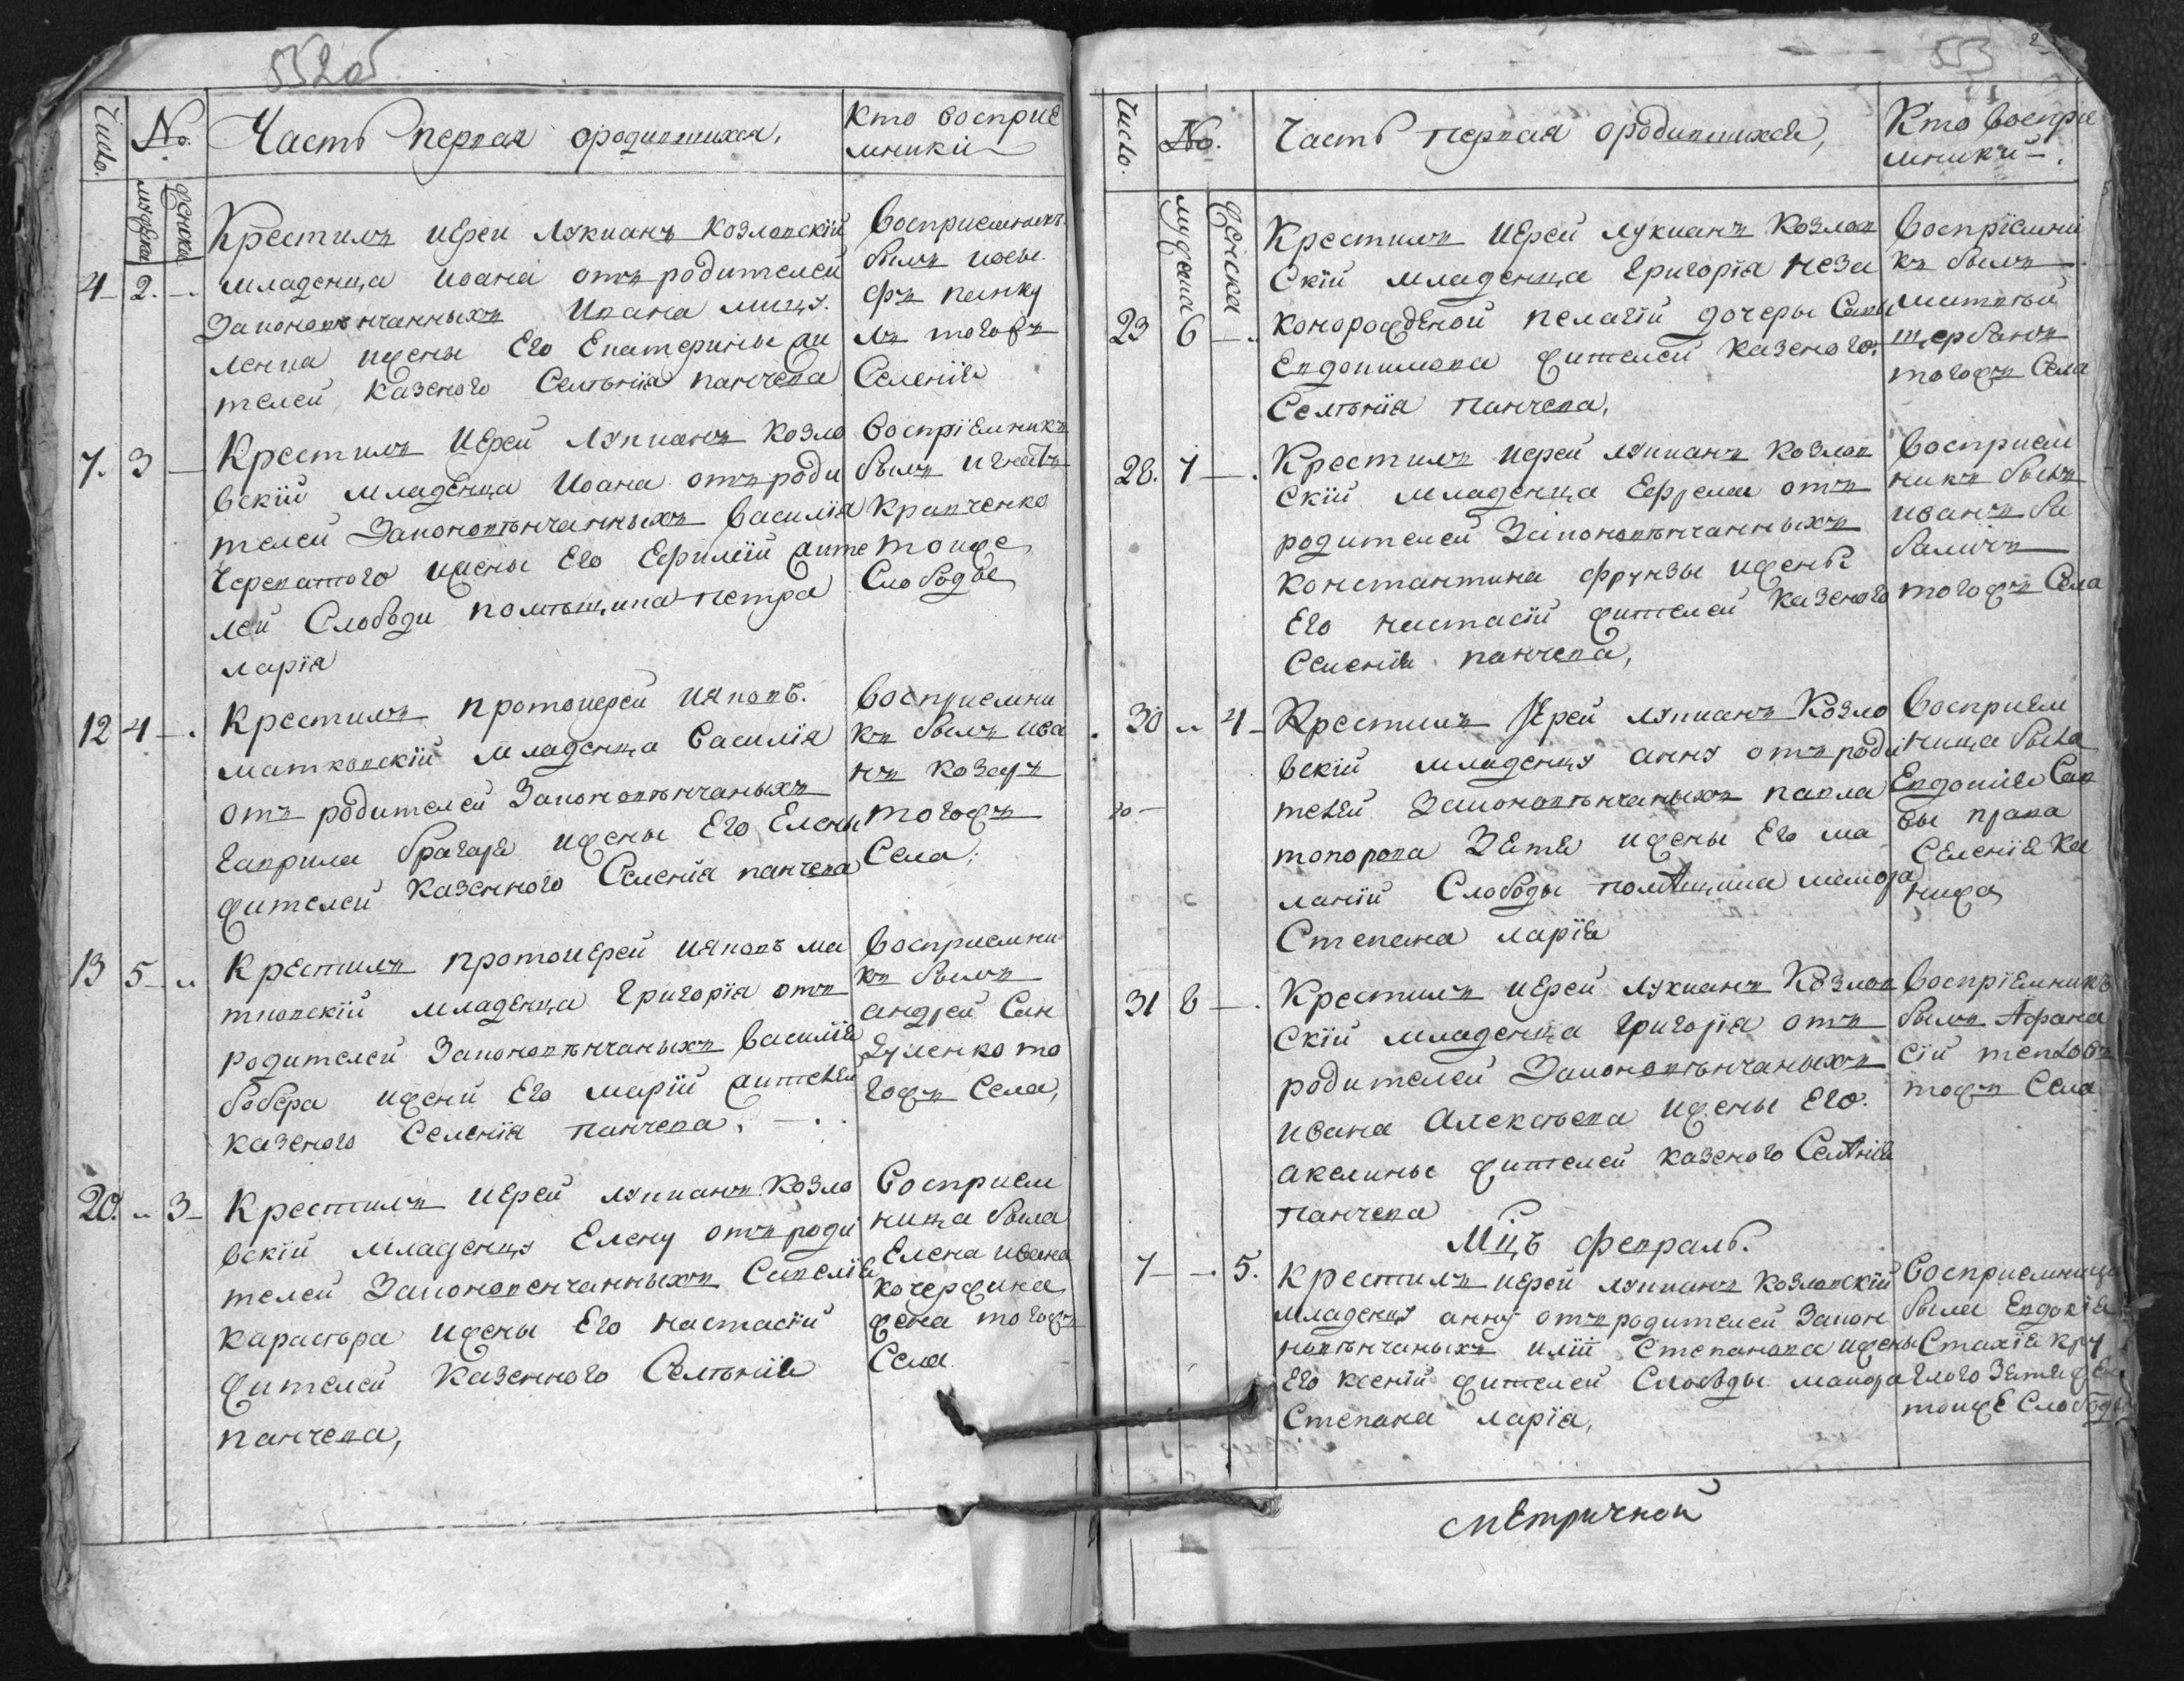 552об
Число.
№.
Часть первая ородившихся,
Кто восприе
мникій
мужеска
женска
4 2. —
Крестилъ иерей Лукианъ Козловскій
младенца иоана отъ родителей
Законовѣнчанныхъ Ивана
ижены Его Екатерины жи
телей казеного Селѣнія панчева
Восприемникъ
былъ иосы
фъ
лъ тогожъ
Селенія
7. 3 —
Крестилъ Иерей Лукианъ Козло
вскій младенца Иоана отъ роди
телей Законовѣнчанныхъ Василія
Черепатого ижены Его Ефимій жите
лей Слободи помѣщика петра
ларія
Воспріемникъ
былъ игнатъ
Кравченко
тоиже
Слободы
12 4 —
Крестилъ протоиерей ияковъ
матковскій младенца Василія
отъ родителей Законовѣнчаныхъ
гаврила брагаря ижены Его Елены
жителей казенного Селенія панчева
Восприемни
къ былъ ива
нъ козаръ
тогожъ
Села.
13 5 —
Крестилъ протоиерей ияковъ ма
тковскій младенца григорія отъ
родителей Законовѣнчаныхъ Василія
бобера ижени Его марій жителей
казеного Селенія панчева.
Восприемни
къ былъ
андрей Сан
дуленко то
гожъ Села,
20. — 3
Крестилъ Иерей лукианъ Козло
вскій младенцу Елену отъ роди
телей Законовенчанныхъ Савелія
карастора ижены Его настасій
жителей казенного Селѣнія
панчева,
Восприем
ница была
Елена ивана
кочержина
жена тогожъ
Села
553
Число.
№.
Часть первая ородившихся,
Кто воспріе
мникій
мужеска
женска
23 6 —
Крестилъ Иерей лукианъ Козлов
скій младенца григорія неза
конорожденой пелагій дочеры Савы
Евдокимова жителей казеного
Селѣнія панчева,
Воспріемни
къ былъ
матвѣй
щербанъ
тогожъ Села
28. 7 —
Крестилъ иерей лукианъ Козлов
скій младенца Ефрема отъ
родителей Законовѣнчанныхъ
константина фрунзы ижены
Его настасій жителей казеного
Селенія панчева,
Восприем
никъ былъ
иванъ ба
баличъ
тогожъ Села
30 — 4
Крестилъ Иерей лукианъ Козло
вскій младенцу анну отъ роди
телей Законовѣнчаныхъ павла
топорова Зятя ижены Его ма
ланій Слободы помѣщика маиора
Степана ларія
Восприем
ница была
Евдокія Сав
вы
Селенія ка
31 8 —
Крестилъ иерей лукианъ Козлов
скій младенца григорія отъ
родителей Законовѣнчаныхъ
ивана Алексѣева ижены Его
акелины жителей казеного Селѣнія
панчева
Воспріемникъ
былъ Афана
сій
тожъ Села
Мцъ февраль.
7 — 5.
Крестилъ иерей лукианъ козловскій
младенцу анну отъ родителей Закон
новѣнчаныхъ илій Степанова ижены
Его ксеній жителей Слободы маиора
Степана ларія,
Восприемница
была Евдокія
Стахія кру
глого Зятя жена
тоижЕ Слободы
мЕтричной